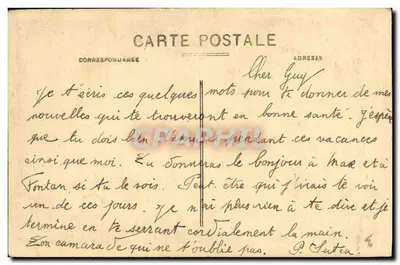 CARTE POSTALE
CORRESPONDANCE ADRESSE
Cher Guy
Je t'écris ces quelques mots pour te donner de mes
nouvelles qui te trouveront en bonne santé. J'espère
que tu dois bien t'amuser pendant ces vacances
ainsi que moi. Tu donneras le bonjour à Max et à
Fontan si tu le vois. Peut être que j'irais te voir
un de ces jours. Je n'ai plus rien à te dire et je
termine en te serrant cordialement la main.
Ton camarade qui ne t'oublie pas. P.